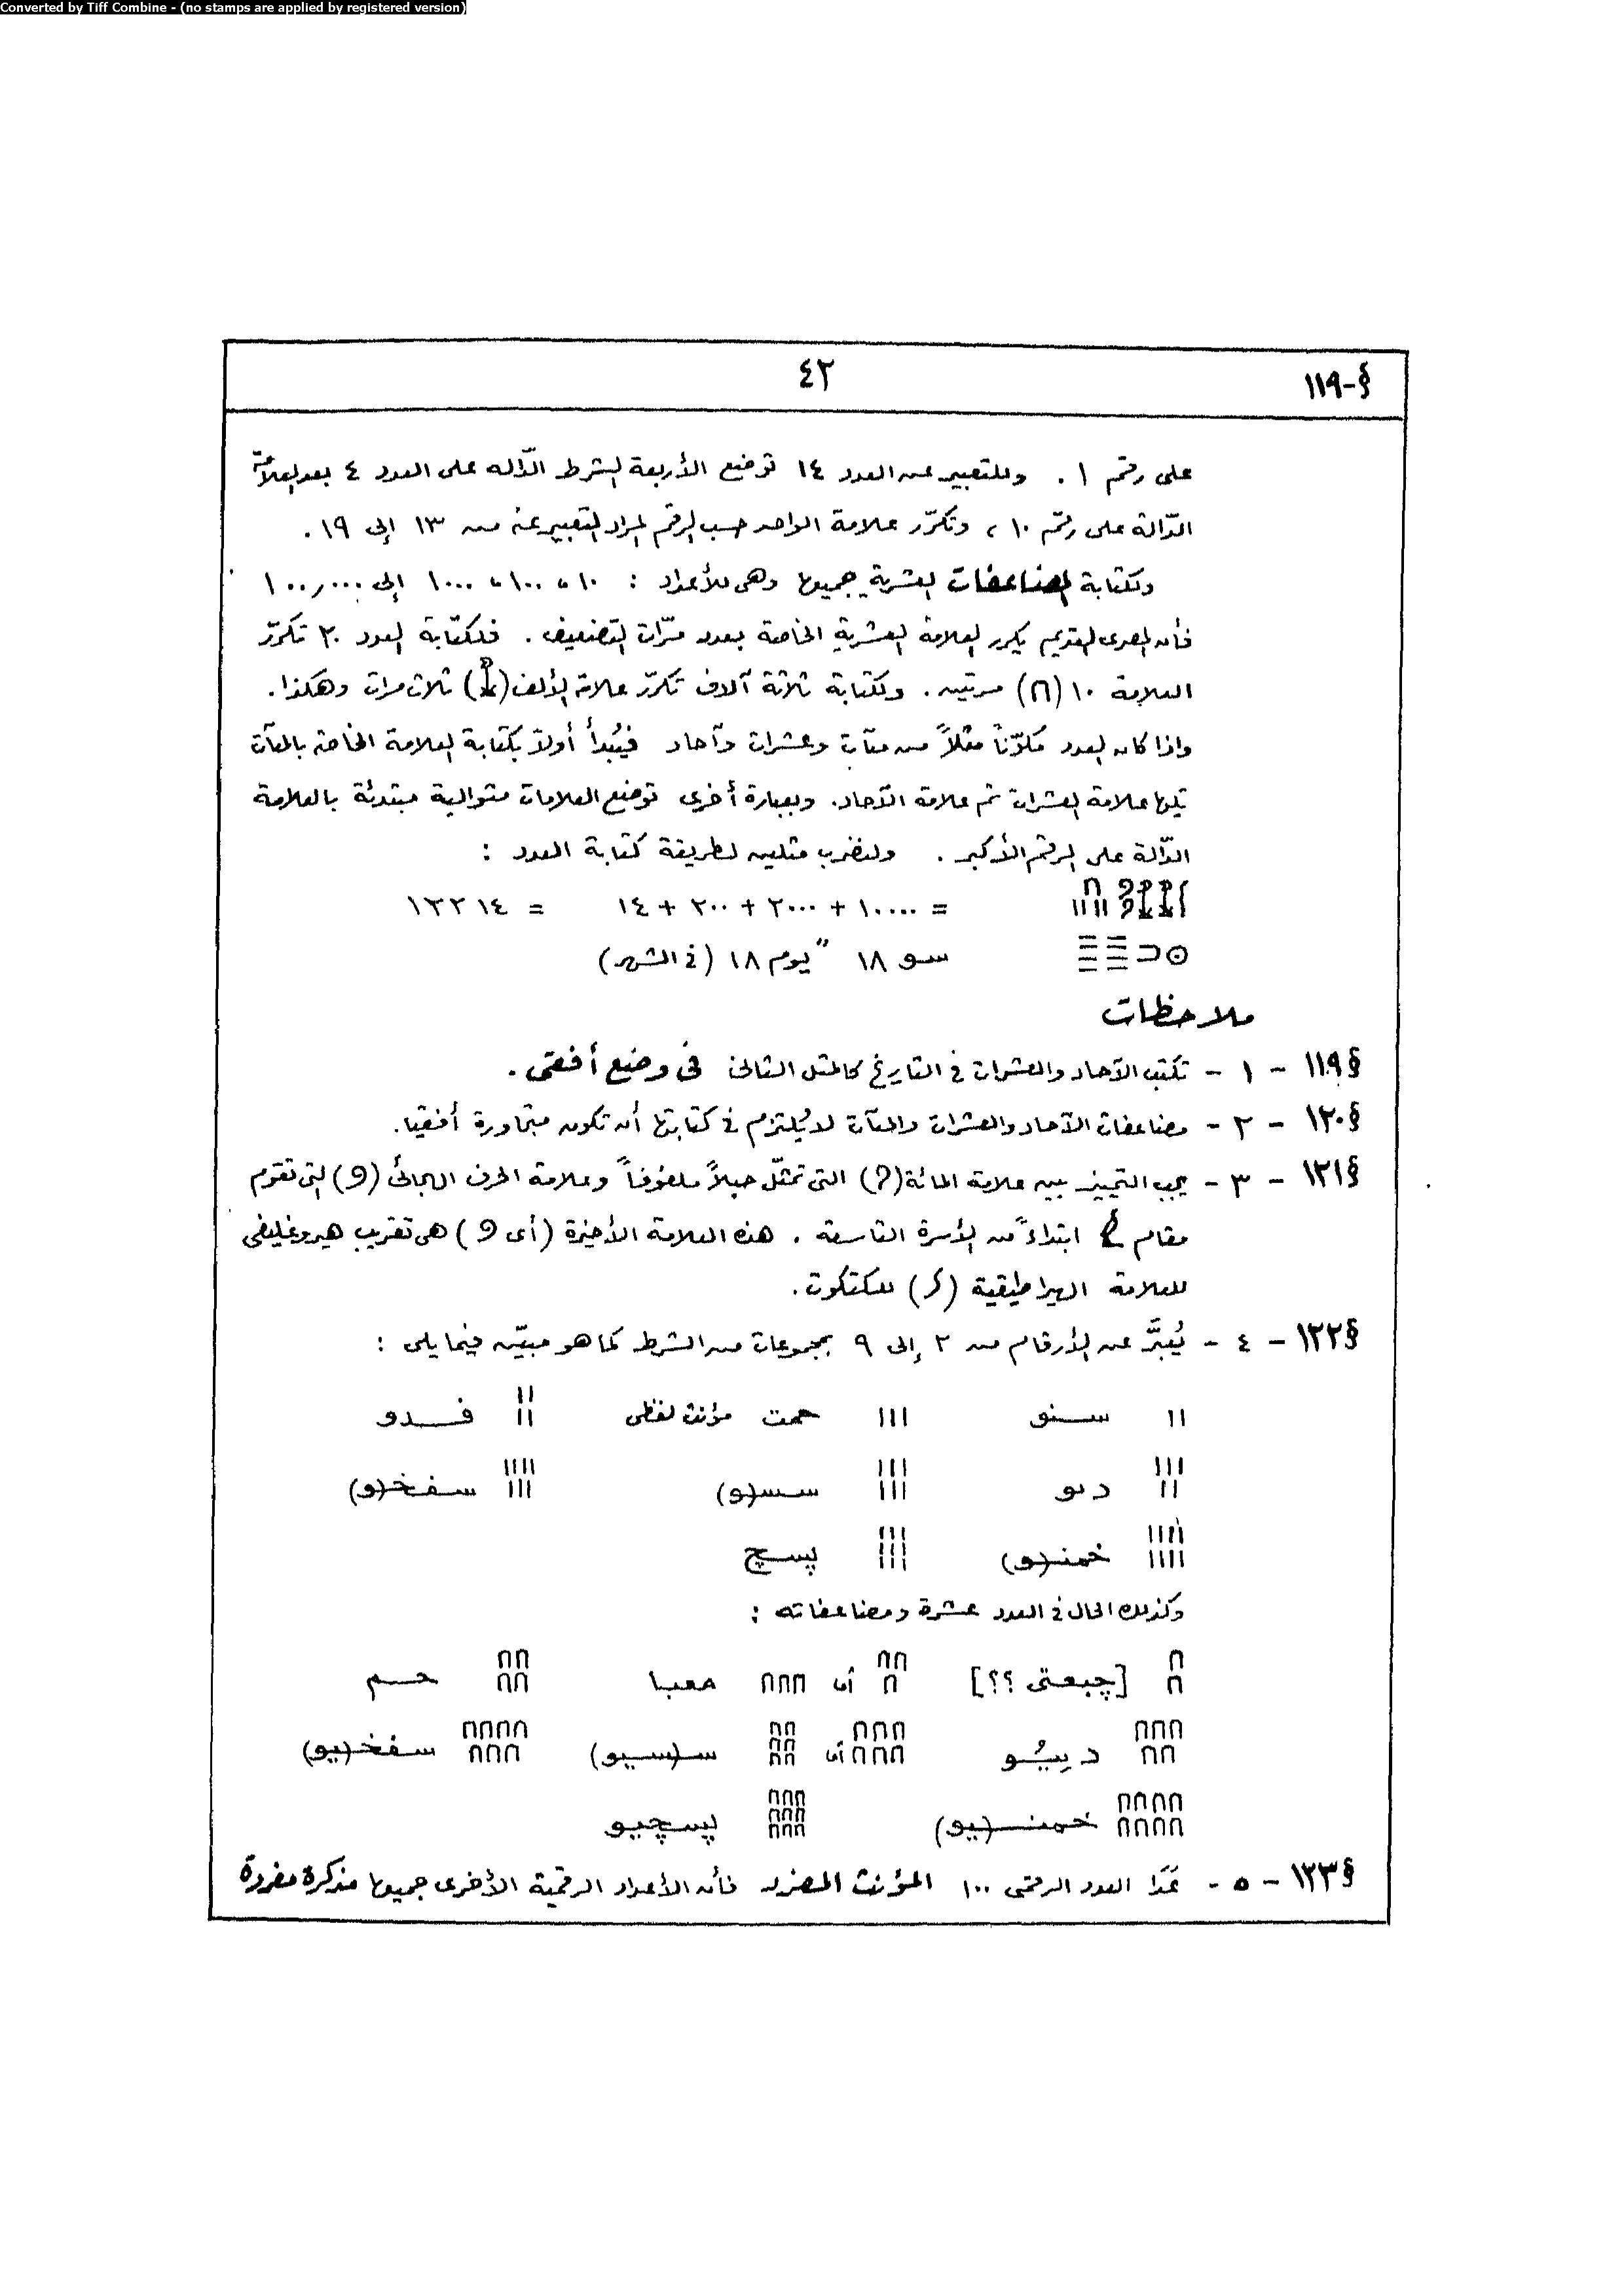 Converted by Tiff Combine - (no stamps are applied by registered version)
§-١١٩
٤٢
على رقم ١ . وللتعبير عن العدد ١٤ توضع الأربعة الشرط الدّاله على العدد ٤ بعد العلامة
الدّالة على رقم ١٠ ، وتكرّر علامة الواحد حسب الرقم المراد التعبير عنه من ١٣ إلى ١٩ .
ولكتابة المضاعفات العشرية جميعها وهى للأعداد : ١٠ ، ١٠٠ ، ١٠٠٠ إلى ١٠٠,٠٠٠
فأن المصرى القديم يكرر العلامة العشرية الخاصة بعدد مرّات التضعيف . فلكتابة العدد ٢٠ تكرّر
العلامة ١٠ (∩) مرتين . ولكتابة ثلاثة آلاف تكرّر علامة الألف (𓆼) ثلاث مرات وهكذا .
واذا كان العدد مكوّناً مثلاً من مئات وعشرات وآحاد فيُبدأ أولاً بكتابة العلامة الخاصة بالمئات
تليها علامة العشرات ثم علامة الآحاد . وبعبارة أخرى توضع العلامات متوالية مبتدئة بالعلامة
الدّالة على الرقم الأكبر . ولنضرب مثلين لطريقة كتابة العدد :
= ١٠٠٠٠ + ٢٠٠٠ + ٢٠٠ + ١٤ = ١٢٢١٤
سو ١٨ " يوم ١٨ (فى الشهر)
ملاحظات
§١١٩ - ١ - تكتب الآحاد والعشرات فى التاريخ كالمثل الثانى فى وضع أفقى .
§١٢٠ - ٢ - مضاعفات الآحاد والعشرات والمئات لا يُلتزم فى كتابتها أن تكون متجاورة أفقيا .
§١٢١ - ٣ - يجب التمييز بين علامة المائة (𓍢) التى تمثّل حبلاً ملفوفاً وعلامة الحرف الهجائى (𓏲) التى تقوم
مقام 𓅱 ابتداءً من الأسرة التاسعة . هذه العلامة الأخيرة (أى 𓏲) هى تقريب هيروغليفى
للعلامة الهيراطيقية للكتكوت .
§١٢٢ - ٤ - يُعبَّر عن الأرقام من ٢ إلى ٩ بمجموعات من الشرط كما هو مبيّن فيما يلى :
۱۱ سنو ۱۱۱ خمت مؤنث لفظى ۱۱۱۱ فدو
۱۱۱۱۱ ديو ۱۱۱۱۱۱ سسـ(و) ۱۱۱۱۱۱۱ سفخـ(و)
۱۱۱۱۱۱۱۱ خمنـ(و) ۱۱۱۱۱۱۱۱۱ پسچ
وكذلك الحال فى العدد عشرة ومضاعفاته :
∩∩ [چبعتى ؟؟] ∩∩∩ أو ∩∩∩ معبا ∩∩∩∩ حم
∩∩∩∩∩ ديُيو ∩∩∩∩∩∩ أو ∩∩∩∩∩∩ سـ(سيو) ∩∩∩∩∩∩∩ سفخـ(يو)
∩∩∩∩∩∩∩∩ خمنـ(يو) ∩∩∩∩∩∩∩∩∩ پسچيو
§١٢٣ - ٥ - عَدَا العدد الرقمى ١٠٠ المؤنث المفرد فأن الأعداد الرقمية الأخرى جميعها مذكرة مفردة